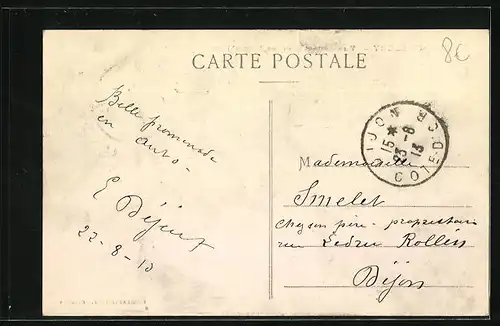 8€
CARTE POSTALE
Belle promenade
en auto -
E Déjeux
22-8-13
DIJON
15 *
23 - 8
13
COTE D'OR
Mademoiselle
Smelet
chez son père - propriétaire
rue Ledru Rollin
Dijon